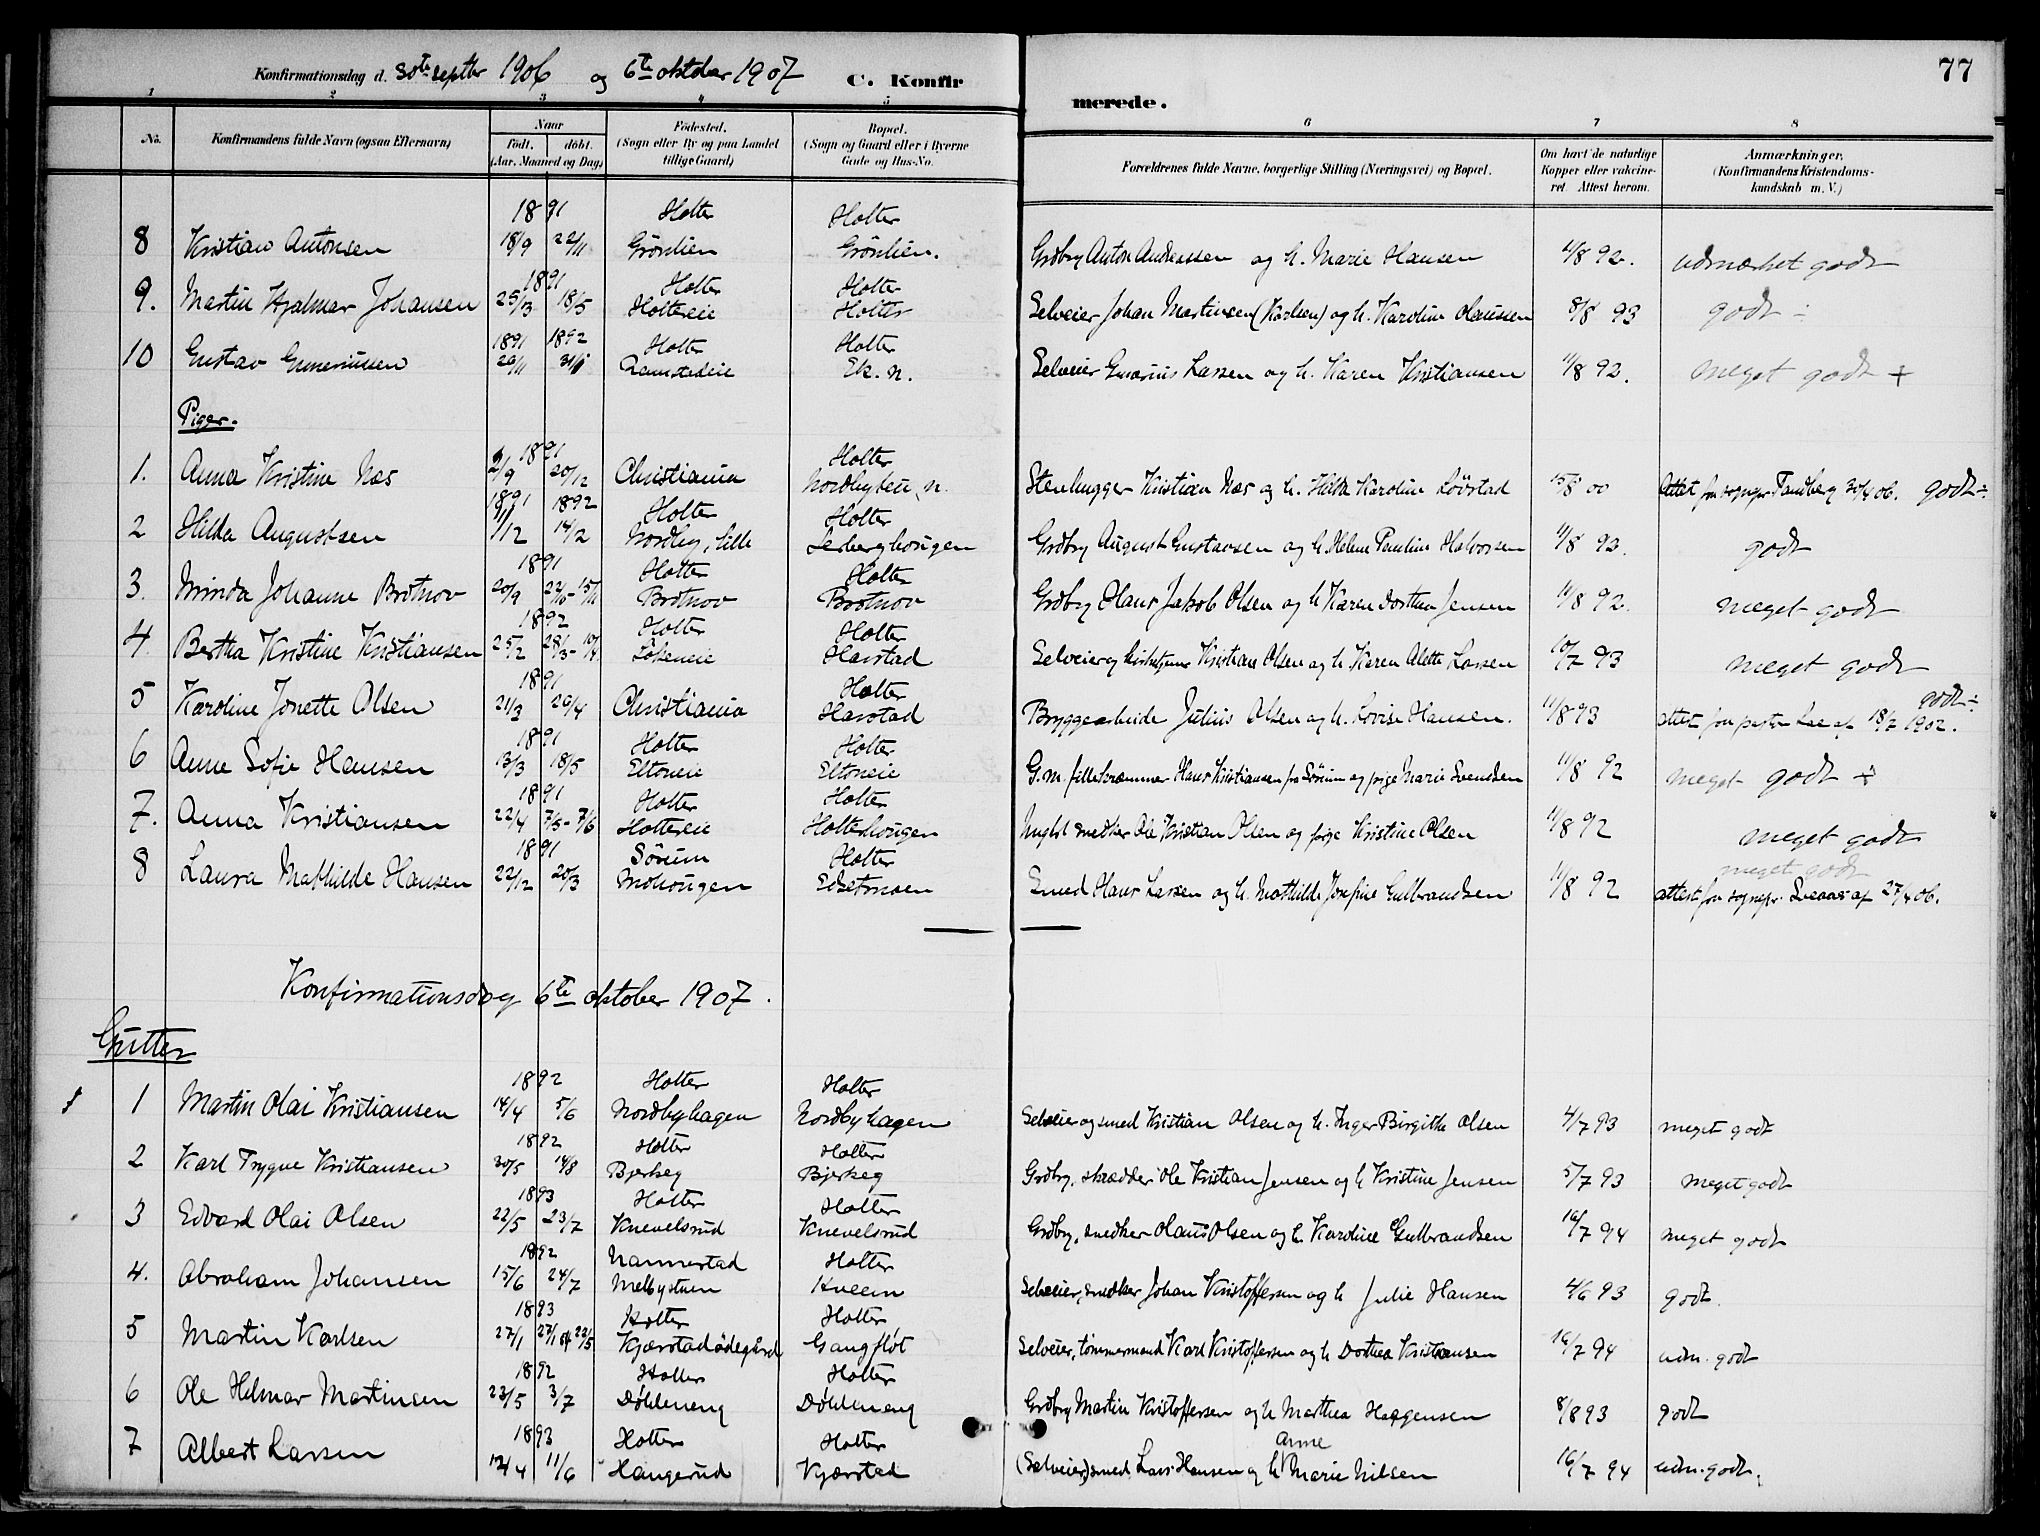 Konfirmationsdag d. 30te septbr 1906 og 6te oktober 1907 C. Konfir
merede. 77
1 2 3 4 5 6 7 8
No. Konfirmandens fulde Navn (ogsaa Efternavn) Naar født. døbt. (Aar. Maaned og Dag) Fødested. (Sogn eller By og paa Landet tillige Gaard) Bopæl. (Sogn og Gaard eller i Byerne Gade og Hus-No. Forældrenes fulde Navne, borgerlige Stilling (Næringsvei) og Bopæl. Om havt de naturlige Kopper eller vakcineret. Attest herom. Anmærkninger. (Konfirmandens Kristendomskundskab m. V.)
1891 Holter Holter
8 Kristian Antonsen 18/9 22/11 Grönlien Grönlien. Grdbr Anton Andreassen og h. Marie Hansen 11/8 92. udmærket godt
1891 Holter Holter
9. Martin Hjalmar Johansen 25/3 18/5 Holtereie Holter Selveier Johan Martinsen (Karlsen) og h. Karoline Olaussen 8/8 93 godt ÷
1891 1892 Holter Holter
10 Gustav Guneriussen 20/11 31/1 Ek. n. Selveier Larsen og h. Karen Kristiansen 11/8 92. meget godt +
Piger.
1891 Holter
1. Anna Kristine Næs 2/9 20/12 Christiania Stenhugger Kristian Næs og h. Hilda Karoline 15/8 00 Attest fra sognepr. Tandberg 30/4 06. godt ÷
1891 1892 Holter Holter
2 Hilda Augustsen 11/12 14/2 Nordby, lille Lerberghougen Grdbr August Gustavsen og h. Helene Pauline Halvorsen 11/8 93. godt
1891 Holter Holter
3. Minda Johanne Brotnov 20/9 22/10 - 15/11 Brotnov Brotnov Grdbr Hans Jakob Olsen og h. Karen Dorthea Jensen 11/8 92. meget godt
1892 Holter Holter
4. Bertha Kristine Kristiansen 25/2 28/3 - 10/4 Harstad Selveier og kirketjener Kristian Olsen og h. Karen Alette Larsen 10/7 93 meget godt
1891 Holter
5 Karoline Jonette Olsen 21/3 26/4 Christiania Harstad Bryggearbeide Julius Olsen og h. Lovise Hansen. 11/8 93 attest fra pastor af 18/7 1902. godt ÷
1891 Holter Holter
6 Anne Sofie Hansen 13/3 18/5 Eltoneie Eltoneie G.m. fillekræmmer Hans Kristiansen fra Sørum og pige Marie Svendsen 11/8 92 meget godt ÷
1891 Holter Holter
7. Anna Kristiansen 22/4 7/5 - 7/6 Holtereie Holterhougen Ungkl snedker Ole Kristian Olsen og pige Kristine Olsen 11/8 92 meget godt
1891 Sörum Holter
8 Laura Mathilde Hansen 22/12 20/3 Mohougen Eidetmoen Smed Hans Larsen og h. Mathilde Josefine Gulbrandsen 11/8 92 meget godt attest fra sognepr. af 27/4 06.
Konfirmationsdag 6te oktober 1907.
Gutter
1892 Holter Holter
1 Martin Olai Kristiansen 14/4 5/6 Nordbyhagen Nordbyhagen Selveier og smed Kristian Olsen og h. Inger Birgithe Olsen 4/7 93 meget godt
1892 Holter Holter
2 Karl Trygve Kristiansen 30/5 14/8 Bjerkeg Bjerkeg Grdbr, skrædder Ole Kristian Jensen og h Kristine Jensen 5/7 93 meget godt
1893 Holter Holter
3 Edvard Olai Olsen 22/5 23/7 Knevelsrud Knevelsrud Grdbr, snedker Olaus Olsen og h. Karoline Gulbrandsen 16/7 94 meget godt
1892 Nannestad Holter
4. Abraham Johansen 15/6 24/7 Melbystuen Kveem Selveier, snedker Johan Kristoffersen og h Julie Hansen 4/6 93 godt.
1893 Holter Holter
5 Martin Karlsen 27/1 27/1 og 22/5 Kjærstadødegård Gangfløt Selveier, tømmermand Karl Kristoffersen og h Dorthea Kristiansen 16/7 94 udm. godt
1892 Holter Holter
6 Ole Helmar Martinsen 23/5 3/7 Døhleneng Døhleneng Grdbr Martin Kristoffersen og h Marthea Haagensen 8/8 93 godt
1893 Holter Holter
7 Albert Larsen 14/4 11/6 Haugerud Kjærstad (Selveier) smed Lars Hansen og h Anne Marie Nilsen 16/7 94 udm. godt.